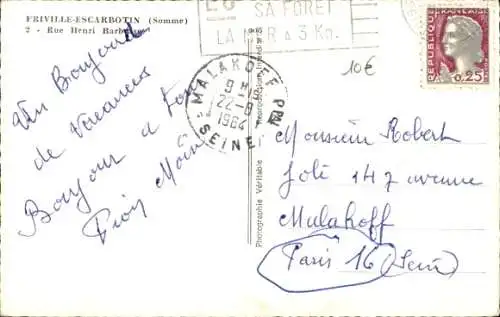 FRIVILLE-ESCARBOTIN (Somme)
2 - Rue Henri Barbusse
SA FORET
LA MER A 3 Km.
MALAKOFF PPAL
9 H15
22-8
1964
SEINE
REPUBLIQUE FRANCAISE
0,25
10€
Un Bonjour
de Vacances
Bonjour a tous
Photographie Véritable
Monsieur Robert
Joli 147 avenue
Malakoff
Paris 16 (Seine)